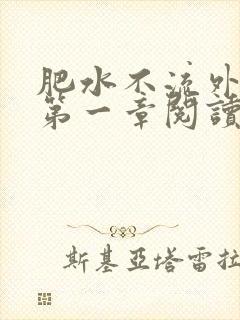 肥水不流外
第一章閱讀
斯基亞塔雷拉